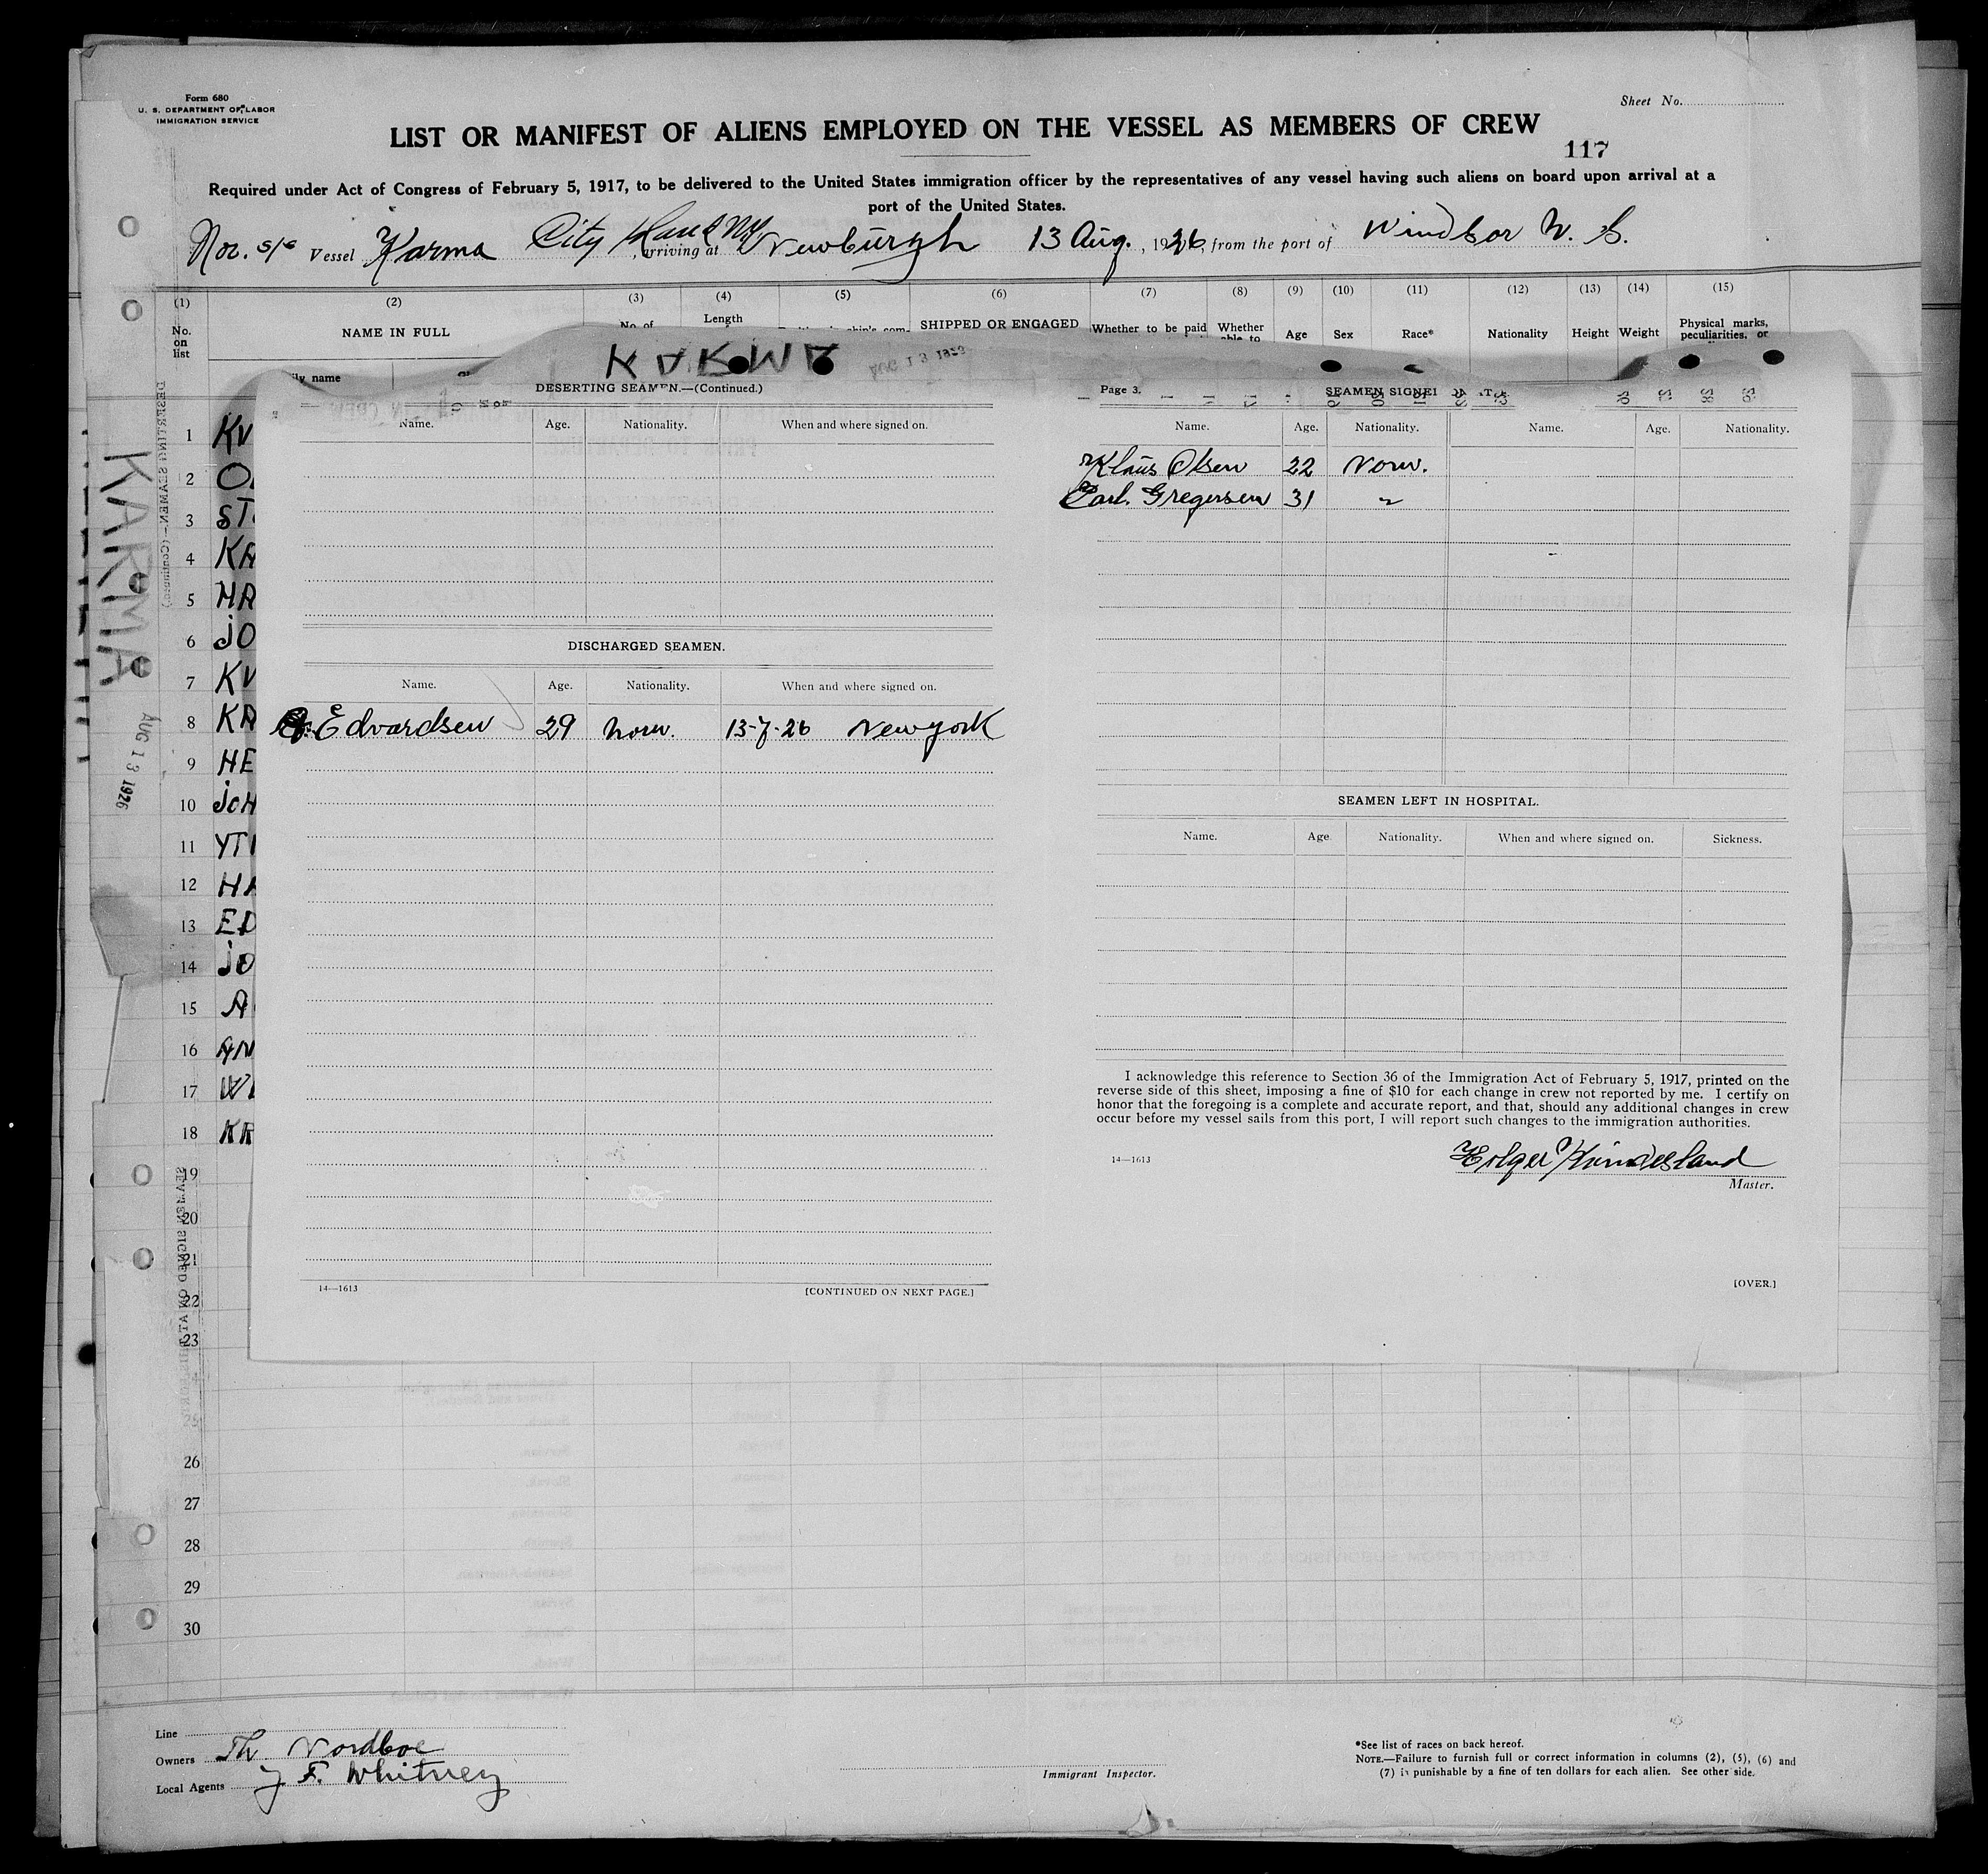 Form 680
U. S. DEPARTMENT OF LABOR
IMMIGRATION SERVICE
Sheet No.
LIST OR MANIFEST OF ALIENS EMPLOYED ON THE VESSEL AS MEMBERS OF CREW
117
Required under Act of Congress of February 5, 1917, to be delivered to the United States immigration officer by the representatives of any vessel having such aliens on board upon arrival at a
port of the United States.
Nor. s/s Vessel Karma City Island NY arriving at Newburgh 13 Aug., 1926, from the port of Windsor N. S.
(1) (2) (3) (4) (5) (6) (7) (8) (9) (10) (11) (12) (13) (14) (15)
No. on list NAME IN FULL No. of Length SHIPPED OR ENGAGED Whether to be paid Whether able to Age Sex Race* Nationality Height Weight Physical marks, peculiarities, or
KARMA
AUG 13 1926
DESERTING SEAMEN.—(Continued.)
Name. Age. Nationality. When and where signed on.
DISCHARGED SEAMEN.
Name. Age. Nationality. When and where signed on.
Edvardsen 29 norw. 13-7-26 Newyork
14—1613
[CONTINUED ON NEXT PAGE.]
Page 3.
SEAMEN SIGNED
Name. Age. Nationality. Name. Age. Nationality.
Klaus Olsen 22 Norw.
Carl. Gregersen 31 "
SEAMEN LEFT IN HOSPITAL.
Name. Age Nationality. When and where signed on. Sickness.
I acknowledge this reference to Section 36 of the Immigration Act of February 5, 1917, printed on the
reverse side of this sheet, imposing a fine of $10 for each change in crew not reported by me. I certify on
honor that the foregoing is a complete and accurate report, and that, should any additional changes in crew
occur before my vessel sails from this port, I will report such changes to the immigration authorities.
14—1613
Holger
Master.
[OVER.]
KARMA
AUG 13 1926
1 KV
2 O
3 ST
4 KA
5 HA
6 JO
7 KV
8 KA
9 HE
10 JOH
11 YT
12 HA
13 ED
14 JO
15 A
16 AN
17 W
18 KR
19
20
21
22
23
26
27
28
29
30
Line
Owners Th Nordboe
Local Agents J F. Whitney
Immigrant Inspector.
*See list of races on back hereof.
NOTE.—Failure to furnish full or correct information in columns (2), (5), (6) and
(7) is punishable by a fine of ten dollars for each alien. See other side.